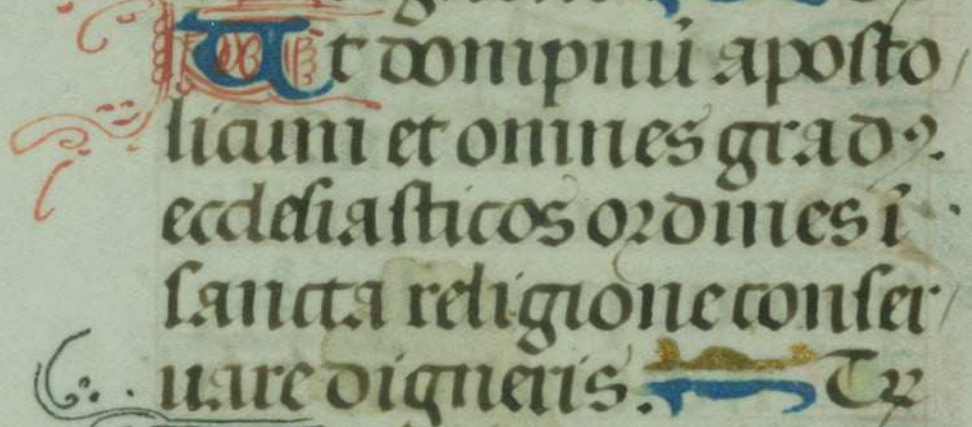 Ut dompnū aposto/
licum et omnes gradꝯ.
ecclesiasticos ordines ī
sancta religione conser/
uare digneris. Te